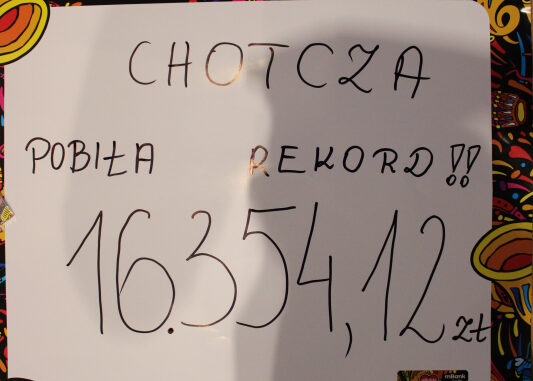 CHOTCZA
POBIŁA REKORD!!
16.354,12 zł
mBank